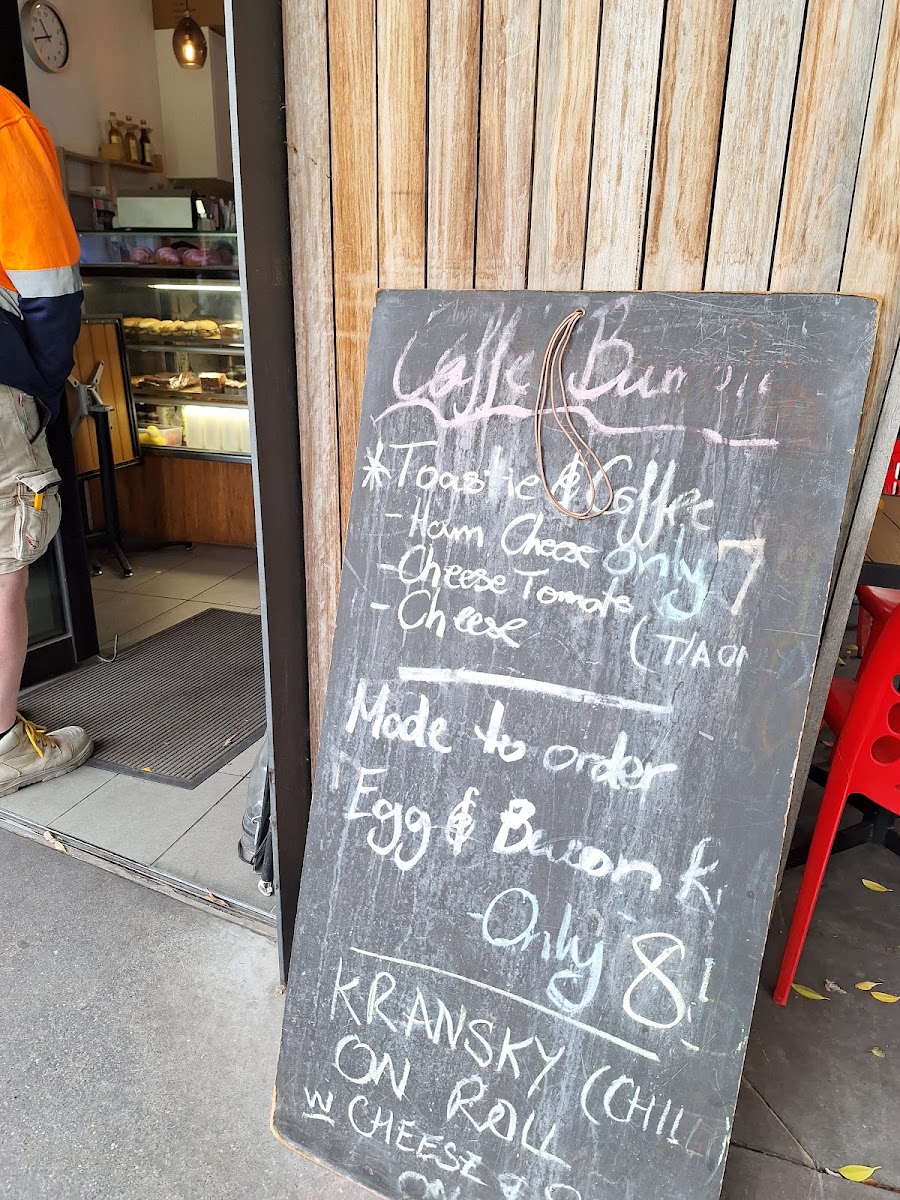 Caffe
*Toastie & Caffee
- Ham Cheese only 7
- Cheese Tomato
- Cheese (T/A
Made to order
Egg & Bacon
- Only 8
KRANSKY (CHIL
ON ROLL
W CHEESE